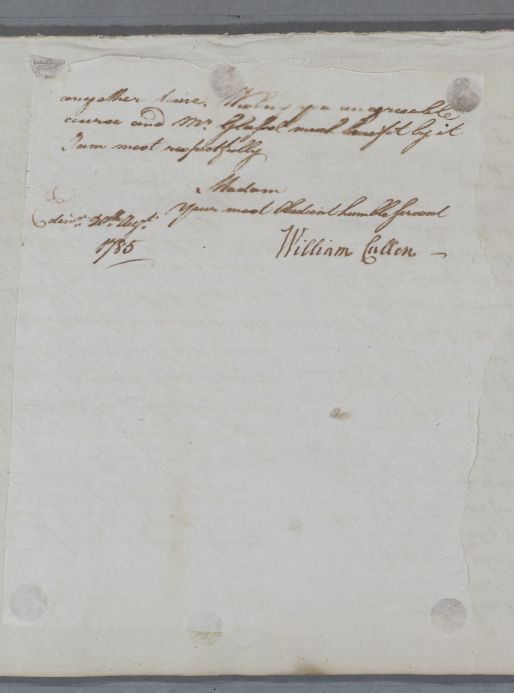 any other time. Wishing you an agreeable
course and Mr. Glassel much benefit by it
I am most respectfully
Madam
Your most Obedient humble servant
Edinr. 20th Augt.
1785
William Cullen